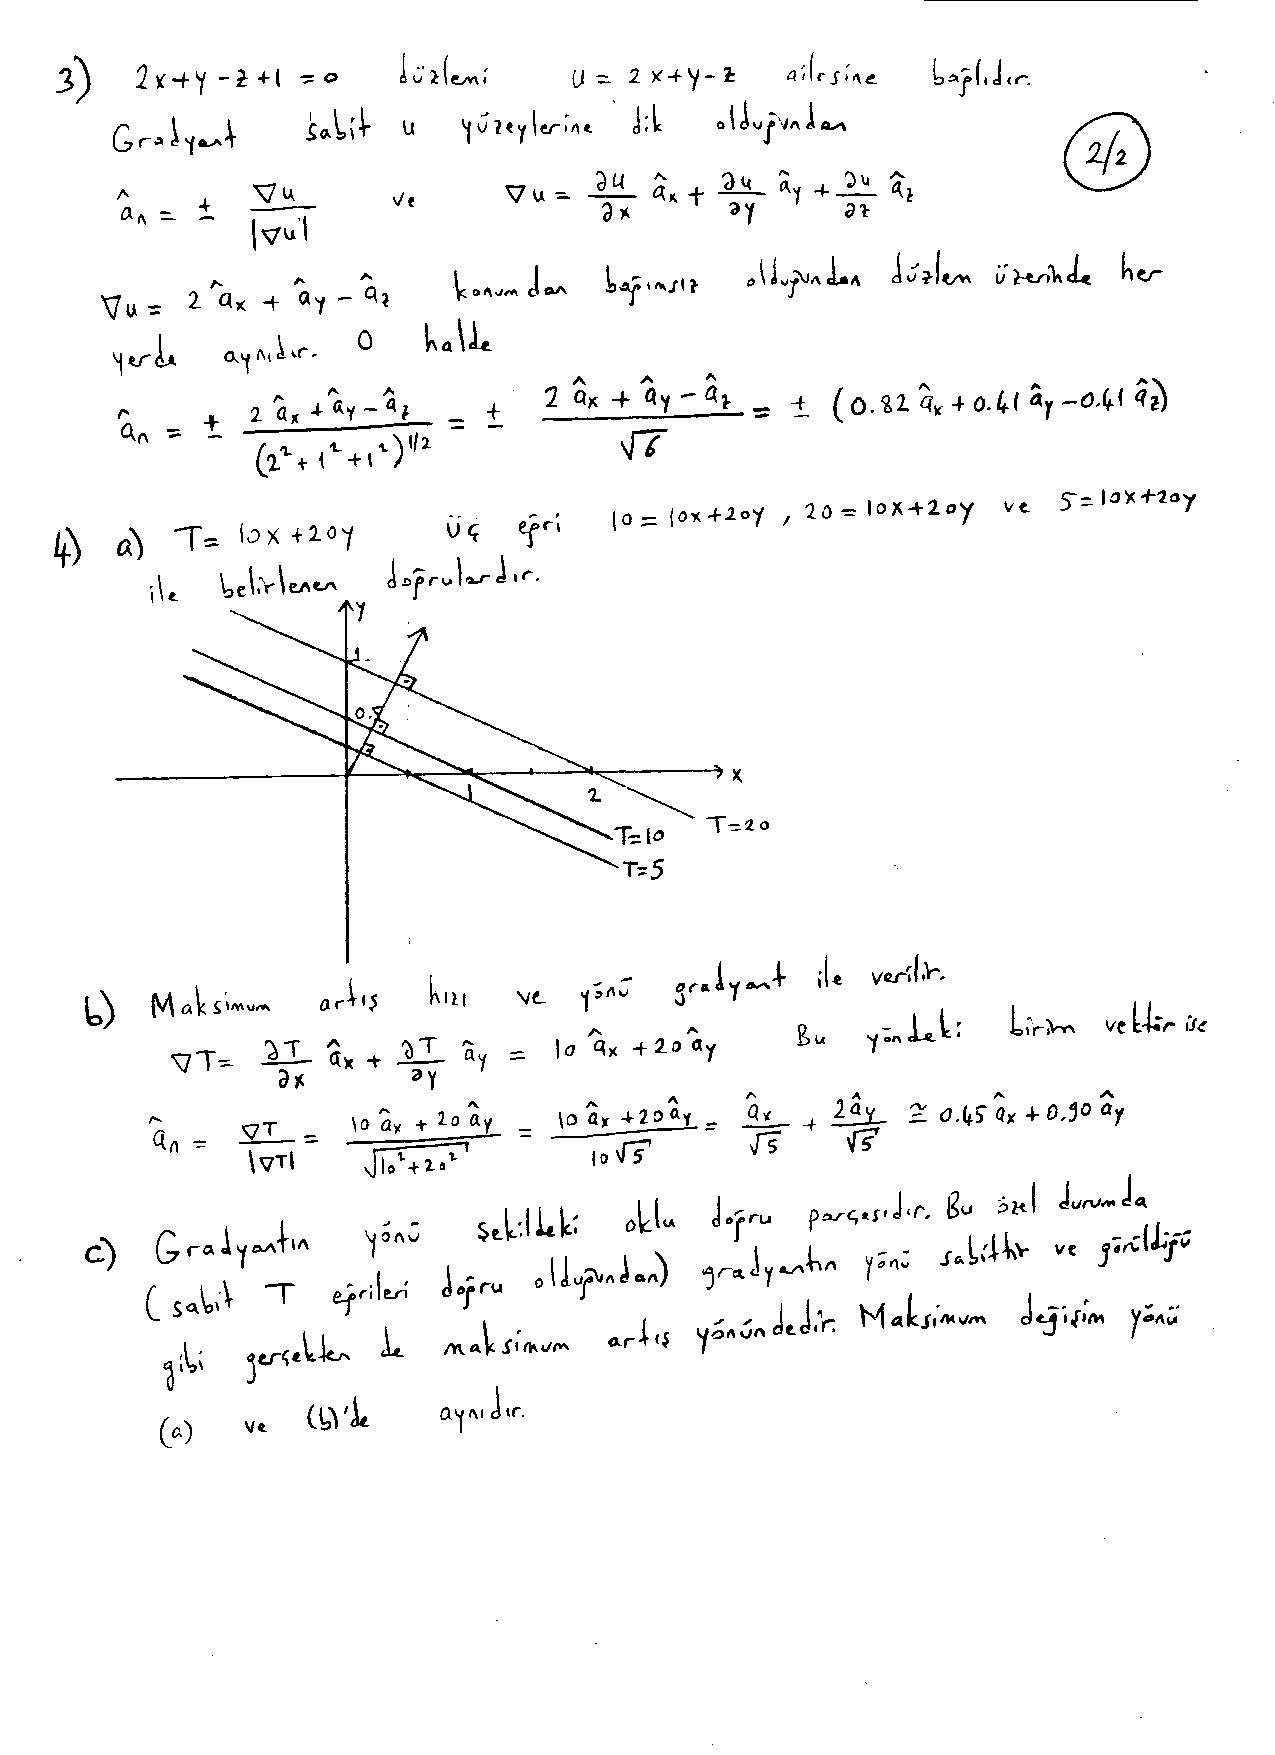 3) 2x+y-z+1=0 düzlemi u = 2x+y-z ailesine bağlıdır.
Gradyant sabit u yüzeylerine dik olduğundan
2/2
â_n = ± ∇u/|∇u| ve ∇u = ∂u/∂x â_x + ∂u/∂y â_y + ∂u/∂z â_z
∇u = 2 â_x + â_y - â_z konumdan bağımsız olduğundan düzlem üzerinde her
yerde aynıdır. O halde
â_n = ± (2 â_x + â_y - â_z)/(2²+1²+1²)^1/2 = ± (2 â_x + â_y - â_z)/√6 = ± (0.82 â_x + 0.41 â_y - 0.41 â_z)
4) a) T = 10x+20y Üç eğri 10 = 10x+20y, 20 = 10x+20y ve 5 = 10x+20y
ile belirlenen doğrulardır.
y
1
0.5
x
1
2
T=20
T=10
T=5
b) Maksimum artış hızı ve yönü gradyant ile verilir.
∇T = ∂T/∂x â_x + ∂T/∂y â_y = 10 â_x + 20 â_y Bu yöndeki birim vektör ise
â_n = ∇T/|∇T| = (10 â_x + 20 â_y)/√(10²+20²) = (10 â_x + 20 â_y)/10√5 = â_x/√5 + 2â_y/√5 ≅ 0.45 â_x + 0.90 â_y
c) Gradyantın yönü şekildeki oklu doğru parçasıdır. Bu özel durumda
(sabit T eğrileri doğru olduğundan) gradyantın yönü sabittir ve görüldüğü
gibi gerçekten de maksimum artış yönündedir. Maksimum değişim yönü
(a) ve (b)'de aynıdır.